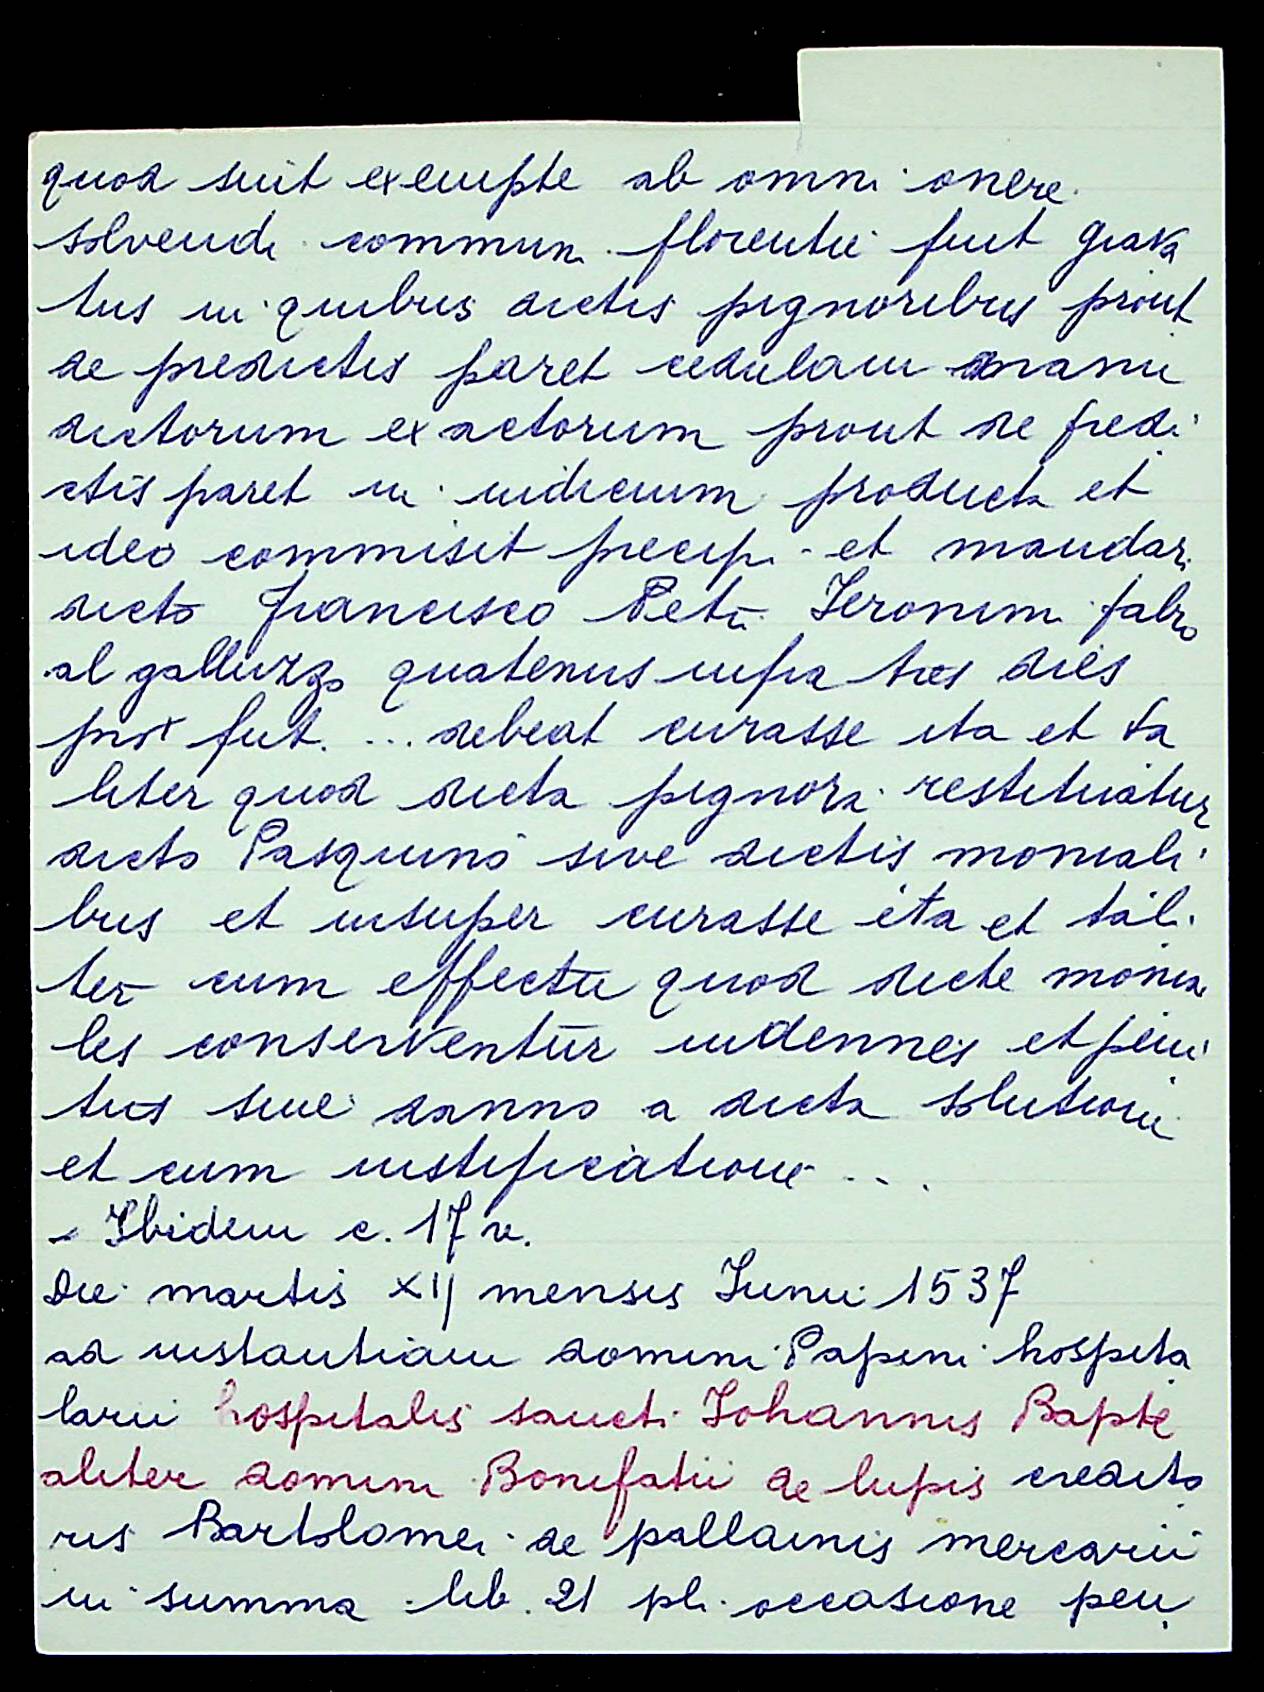 quod sint exempte ab omni onere
solvendi communi florentie fuit grava
tus in quibus dictis pignoribus prout
de predictis paret cedulam manu
dictorum exactorum prout de predi
ctis paret in iudicium producta et
ideo commisit precipi et mandari
dicto Francisco Petri Ieronimi fabro
al galluzzo quatenus infra tres dies
prox fut. ... debeat curasse ita et ta
liter quod dicta pignora restituatur
dicto Pasquino sive dictis moniali
bus et insuper curasse ita et tali
ter cum effectu quod dicte monia
les conserventur indennes et peni
tus sine danno a dicta solutione
et cum iustificatione ...
- Ibidem c. 17 v.
Die martis XIJ mensis Iunii 1537
ad instantiam domini Papini hospita
larii hospitalis sancti Iohannis Bapte
aliter domini Bonifatii de lupis credito
ris Bartolomei de pallainis mercarii
in summa lib. 21 pli occasione pen